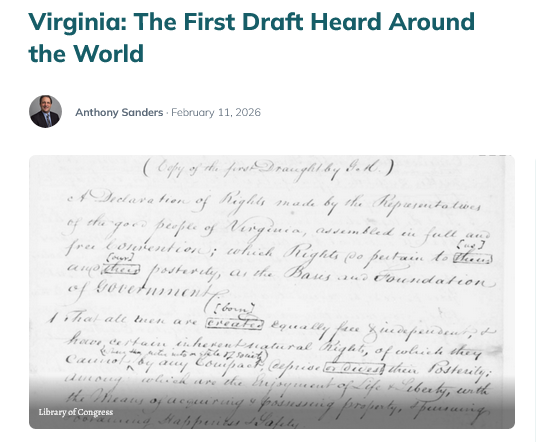 Virginia: The First Draft Heard Around
the World
Anthony Sanders · February 11, 2026
(Copy of the first Draught by G.M.)
A Declaration of Rights made by the Representatives
of the good people of Virginia, assembled in full and
free Convention; which Rights do pertain to [us] them
and [our] their posterity, as the Basis and Foundation
of Government.
[born]
1 That all men are created equally free & independent, &
have certain inherent natural Rights, of which they
cannot by any Compact, deprive or divest their Posterity;
among which are the Enjoyment of Life & Liberty, with
the Means of acquiring & possessing property, & pursuing
obtaining Happiness & Safety.
Library of Congress